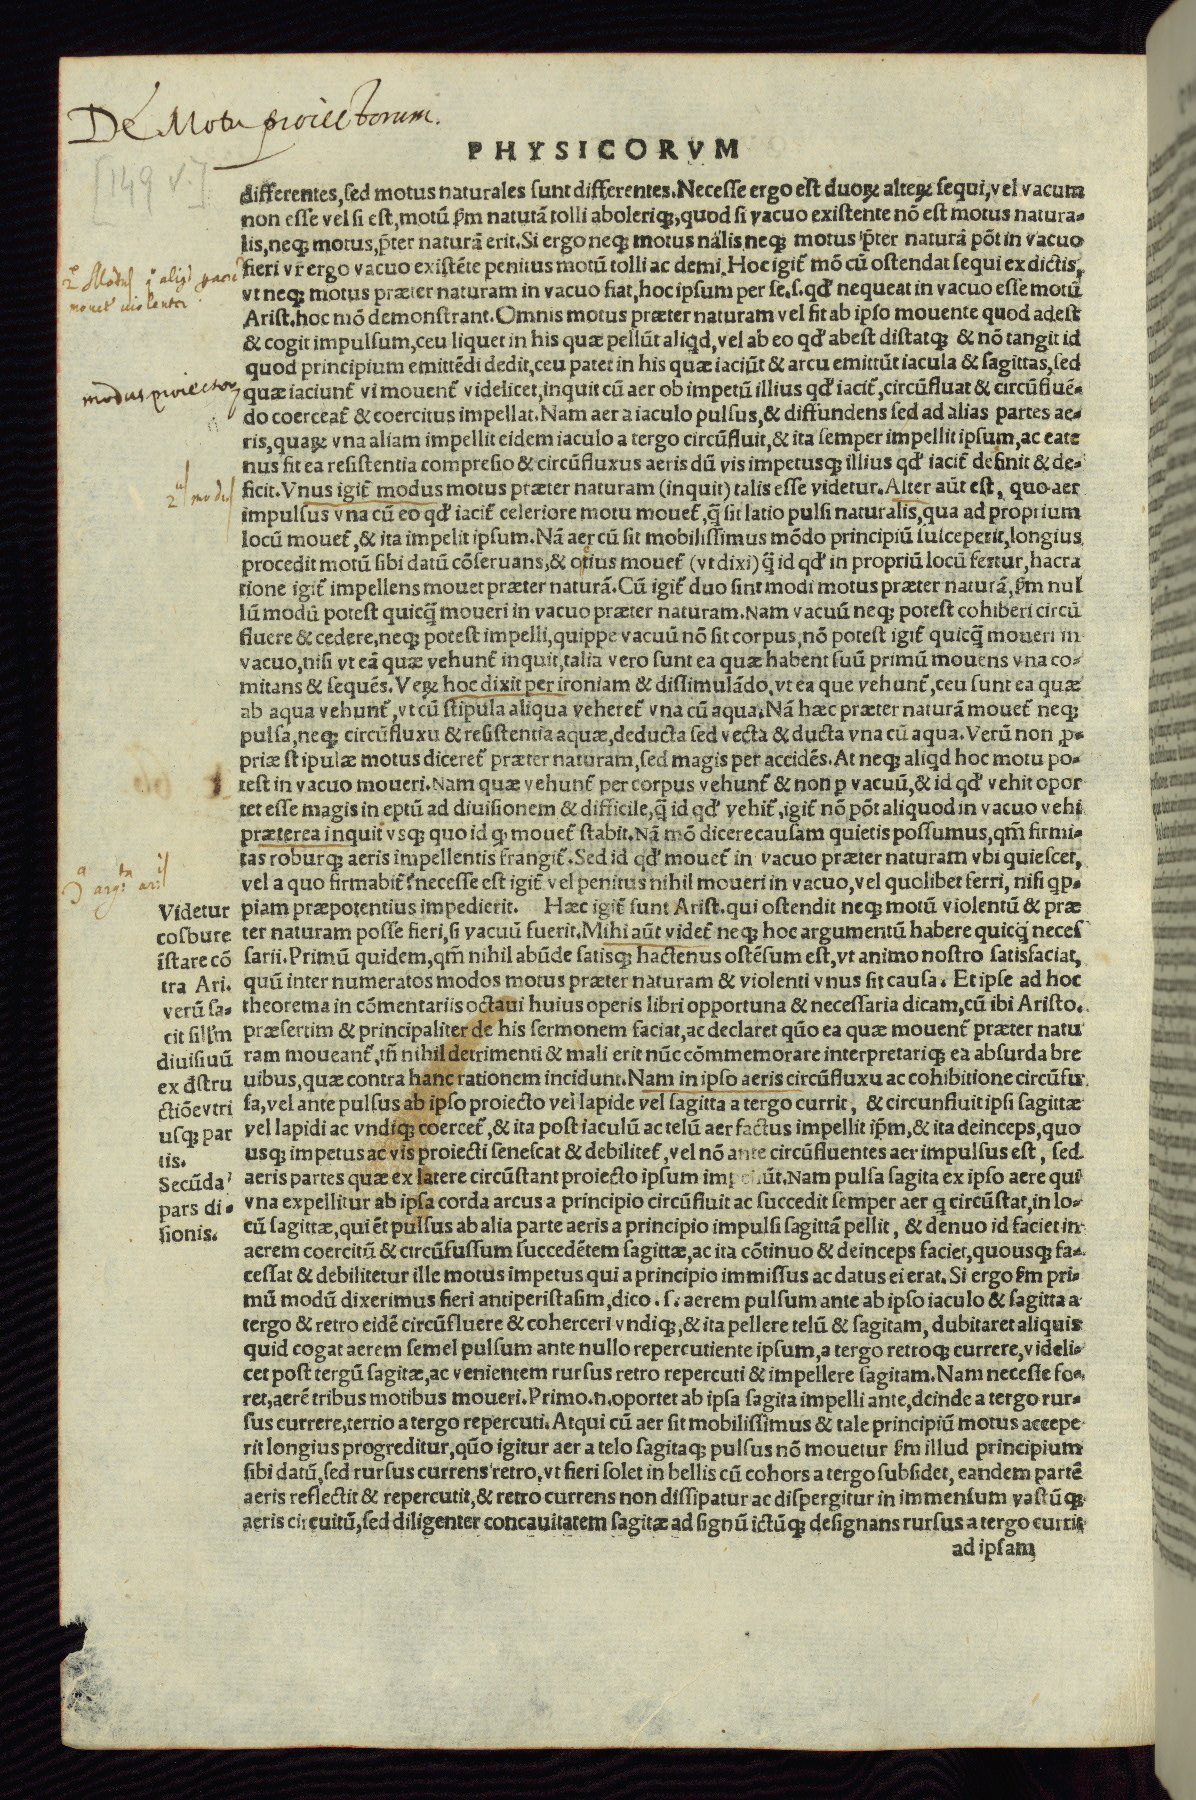 De Motu proiectorum.
PHYSICORVM
[149 v.]
differentes, sed motus naturales sunt differentes. Necesse ergo est duoꝝ alteꝝ sequi, vel vacum
non esse vel si est, motū ẜm naturā tolli aboleriqꝫ, quod si vacuo existente nō est motus natura-
lis, neqꝫ motus, p̄ter naturā erit. Si ergo neqꝫ motus nālis neqꝫ motus p̄ter naturā pōt in vacuo
fieri vr̄ ergo vacuo existēte penitus motū tolli ac demi. Hoc igit̄ mō cū ostendat sequi ex dictis,
vt neqꝫ motus præter naturam in vacuo fiat, hoc ipsum per se, s. qd' nequeat in vacuo esse motū
Arist. hoc mō demonstrant. Omnis motus præter naturam vel fit ab ipso mouente quod adest
& cogit impulsum, ceu liquet in his quæ pellūt aliqd, vel ab eo qd' abest distatqꝫ & nō tangit id
quod principium emittēdi dedit, ceu patet in his quæ iaciūt & arcu emittūt iacula & sagittas, sed
quæ iaciunt vi mouent̄ videlicet, inquit cū aer ob impetū illius qd' iacit̄, circūfluat & circūfluē-
do coerceat̄ & coercitus impellat. Nam aer a iaculo pulsus, & diffundens sed ad alias partes ae-
ris, quaꝝ vna aliam impellit eidem iaculo a tergo circūfluit, & ita semper impellit ipsum, ac eate
nus fit ea resistentia compresio & circūfluxus aeris dū vis impetusqꝫ illius qd' iacit̄ definit & de-
ficit. Vnus igit̄ modus motus præter naturam (inquit) talis esse videtur. Alter aūt est, quo aer
impulsus vna cū eo qd' iacit̄ celeriore motu mouet̄, q̄ sit latio pulsi naturalis, qua ad proprium
locū mouet̄, & ita impelit ipsum. Nā aer cū sit mobilissimus mōdo principiū susceperit, longius
procedit motū sibi datū cōseruans, & otius mouet̄ (vt dixi) q̄ id qd' in propriū locū fertur, hac ra
tione igit̄ impellens mouet præter naturā. Cū igit̄ duo sint modi motus præter naturā, ẜm nul
lū modū potest quicq̄ moueri in vacuo præter naturam. Nam vacuū neqꝫ potest cohiberi circū
fluere & cedere, neqꝫ potest impelli, quippe vacuū nō sit corpus, nō potest igit̄ quicq̄ moueri in
vacuo, nisi vt eā quæ vehunt̄ inquit, talia vero sunt ea quæ habent suū primū mouens vna co-
mitans & sequēs. Veꝝ hoc dixit per ironiam & dissimulādo, vt ea que vehunt̄, ceu sunt ea quæ
ab aqua vehunt̄, vt cū stipula aliqua veheret̄ vna cū aqua. Nā hæc præter naturā mouet̄ neqꝫ
pulsa, neqꝫ circūfluxu & resistentia aquæ, deducta sed vecta & ducta vna cū aqua. Verū non ꝓ-
priæ stipulæ motus diceret̄ præter naturam, sed magis per accidēs. At neqꝫ aliqd hoc motu po-
test in vacuo moueri. Nam quæ vehunt̄ per corpus vehunt̄ & non p vacuū, & id qd' vehit opor
tet esse magis in eptū ad diuisionem & difficile, q̄ id qd' vehit̄, igit̄ nō pōt aliquod in vacuo vehi
præterea inquit vsqꝫ quo id ꝙ mouet̄ stabit. Nā mō dicere causam quietis possumus, qm̄ firmi-
tas roburqꝫ aeris impellentis frangit̄. Sed id qd' mouet̄ in vacuo præter naturam vbi quiescet,
vel a quo firmabit̄? necesse est igit̄ vel penitus nihil moueri in vacuo, vel quolibet ferri, nisi qp-
piam præpotentius impedierit. Hæc igit̄ sunt Arist. qui ostendit neqꝫ motū violentū & præ
ter naturam posse fieri, si vacuū fuerit. Mihi aūt videt̄ neqꝫ hoc argumentū habere quicq̄ neces
sarii. Primū quidem, qm̄ nihil abūde satisqꝫ hactenus ostēsum est, vt animo nostro satisfaciat,
quū inter numeratos modos motus præter naturam & violenti vnus sit causa. Et ipse ad hoc
theorema in cōmentariis octaui huius operis libri opportuna & necessaria dicam, cū ibi Aristo.
præsertim & principaliter de his sermonem faciat, ac declaret quō ea quæ mouent̄ præter natu
ram moueant̄, tn̄ nihil detrimenti & mali erit nūc cōmmemorare interpretariqꝫ ea absurda bre
uibus, quæ contra hanc rationem incidunt. Nam in ipso aeris circūfluxu ac cohibitione circūfu
sa, vel ante pulsus ab ipso proiecto vel lapide vel sagitta a tergo currit, & circunfluit ipsi sagittæ
vel lapidi ac vndiqꝫ coercet̄, & ita post iaculū ac telū aer factus impellit ip̄m, & ita deinceps, quo
usqꝫ impetus ac vis proiecti senescat & debilitet̄, vel nō ante circūfluentes aer impulsus est, sed
aeris partes quæ ex latere circūstant proiecto ipsum impellūt. Nam pulsa sagita ex ipso aere qui
vna expellitur ab ipsa corda arcus a principio circūfluit ac succedit semper aer q circūstat, in lo-
cū sagittæ, qui ēt pulsus ab alia parte aeris a principio impulsi sagittā pellit, & denuo id faciet in
aerem coercitū & circūfussum succedētem sagittæ, ac ita cōtinuo & deinceps faciet, quousqꝫ fa-
cessat & debilitetur ille motus impetus qui a principio immissus ac datus ei erat. Si ergo ẜm pri-
mū modū dixerimus fieri antiperistasim, dico. s. aerem pulsum ante ab ipso iaculo & sagitta a
tergo & retro eidē circūfluere & coherceri vndiqꝫ, & ita pellere telū & sagitam, dubitaret aliquis
quid cogat aerem semel pulsum ante nullo repercutiente ipsum, a tergo retroqꝫ currere, videli-
cet post tergū sagitæ, ac venientem rursus retro repercuti & impellere sagitam. Nam necesse fo-
ret, aerē tribus motibus moueri. Primo .n. oportet ab ipsa sagita impelli ante, deinde a tergo rur-
sus currere, tertio a tergo repercuti. Atqui cū aer sit mobilissimus & tale principiū motus accepe
rit longius progreditur, quō igitur aer a telo sagitaqꝫ pulsus nō mouetur ẜm illud principium
sibi datū, sed rursus currens retro, vt fieri solet in bellis cū cohors a tergo subsidet, eandem partē
aeris reflectit & repercutit, & retro currens non dissipatur ac dispergitur in immensum vastūqꝫ
aeris circuitū, sed diligenter concauitatem sagitæ ad signū ictūqꝫ designans rursus a tergo currit
ad ipsam
mouet̄ violenter
modus proiectoꝝ
2us modus
Videtur
cosbure
īstare cō
tra Ari.
verū fa-
cit silſm
diuisiuū
ex dr̄stru
ctiōe vtri
usqꝫ par
tis.
Secūda
pars di-
sionis.